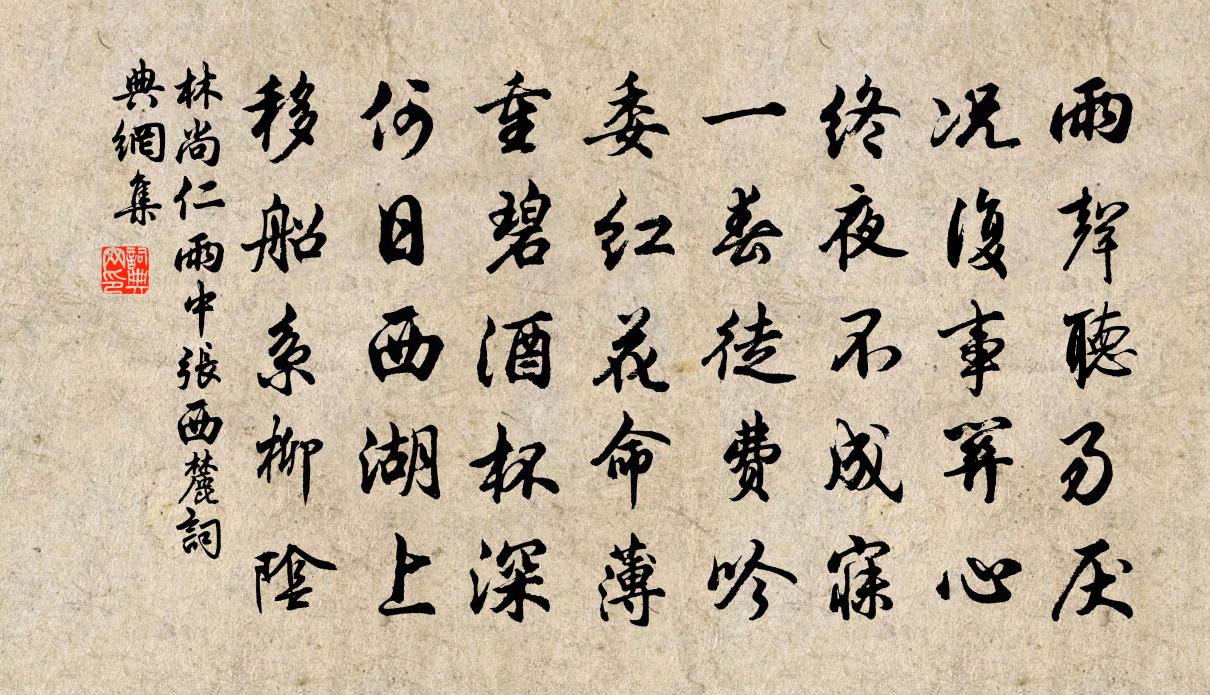 雨聲聽易厌
况復事關心
終夜不成寐
一春徒費吟
委紅花命薄
重碧酒杯深
何日西湖上
移船系柳陰
林尚仁雨中張西麓詞
典網集
詞典
网印